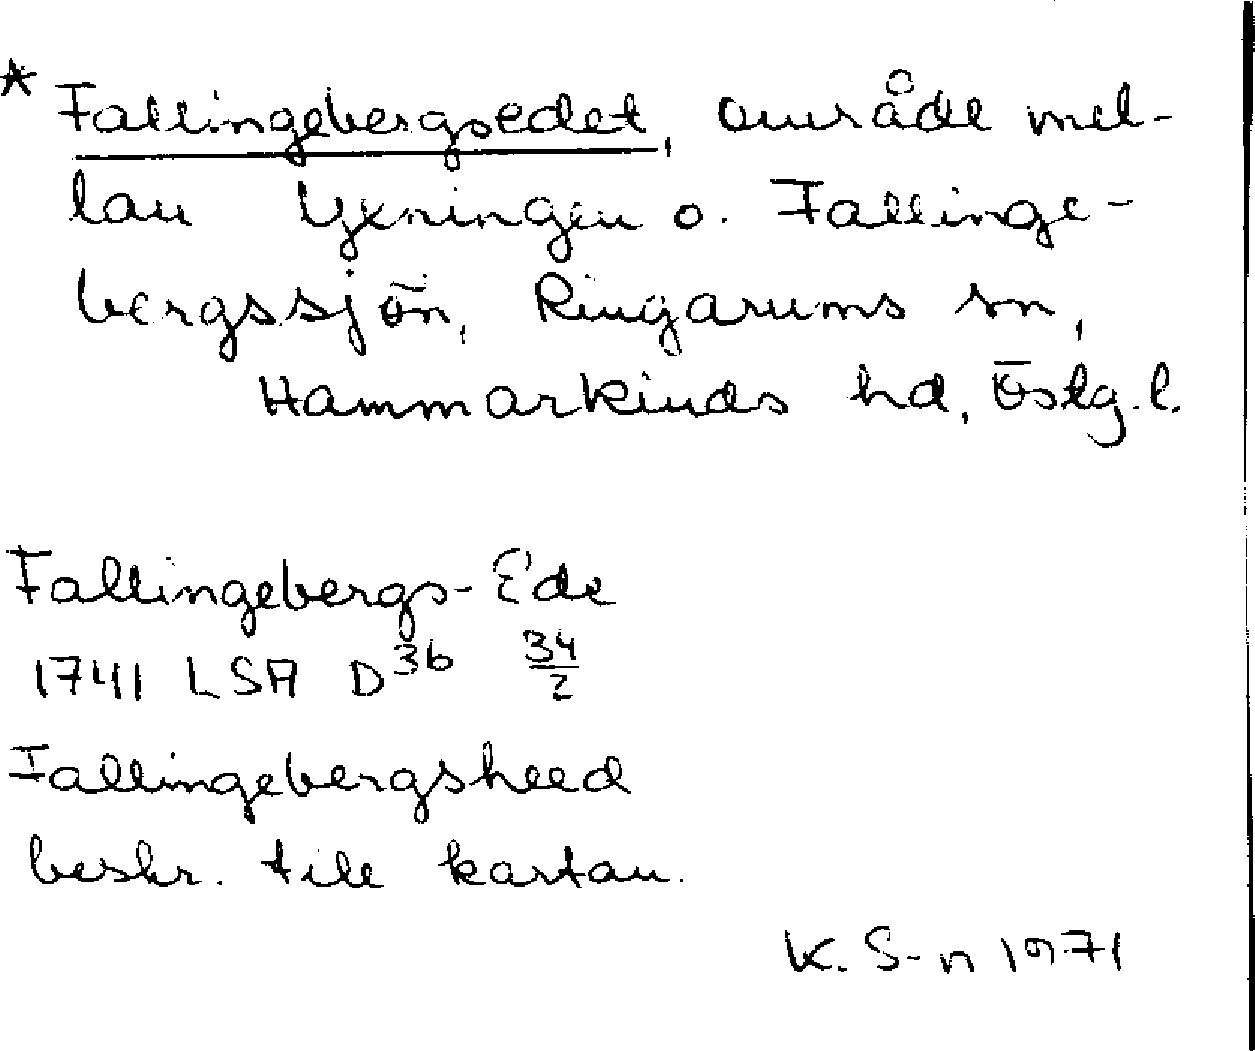 * Fallingebergsedet, område mel-
lan Yxningen o. Fallinge-
bergssjön, Ringarums sn,
Hammarkinds hd, Östg. l.
Fallingebergs-Ede
1741 LSA D36 34/2
Fallingebergsheed
beskr. till kartan.
K. S-n 1971